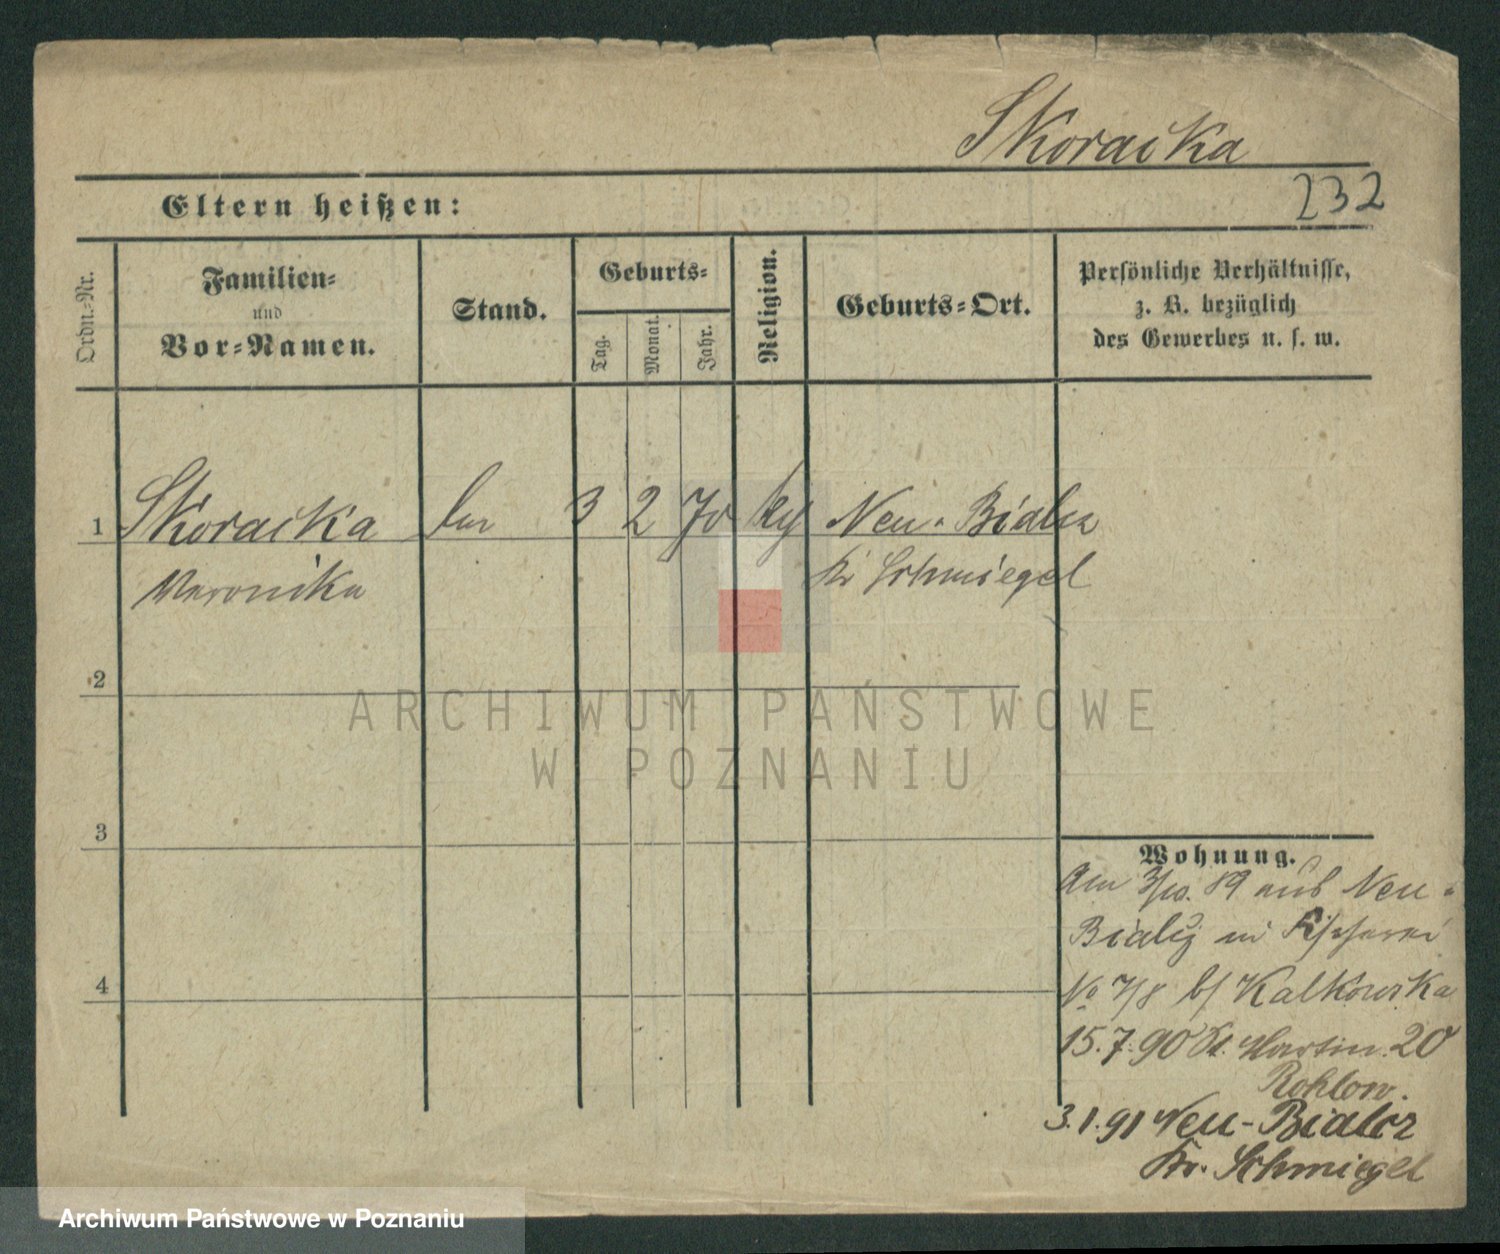 Skoracka
232
Eltern heißen:
Ordn.-Nr.
Familien-
und
Vor-Namen.
Stand.
Geburts-
Tag.
Monat.
Jahr.
Religion.
Geburts-Ort.
Persönliche Verhältnisse,
z. B. bezüglich
des Gewerbes u. s. w.
1 Skoracka 3 2 70 Neu-Bialcz
Veronika Kr Schmiegel
2
3
4
Wohnung.
Am 3/10. 89 aus Neu-
Bialcz in Fischerei
No 7/8 b/ Kalkowska
15.7.90 St. Martin 20
Rohlow.
3.1.91 Neu-Bialcz
Kr. Schmiegel
ARCHIWUM PAŃSTWOWE
W POZNANIU
Archiwum Państwowe w Poznaniu